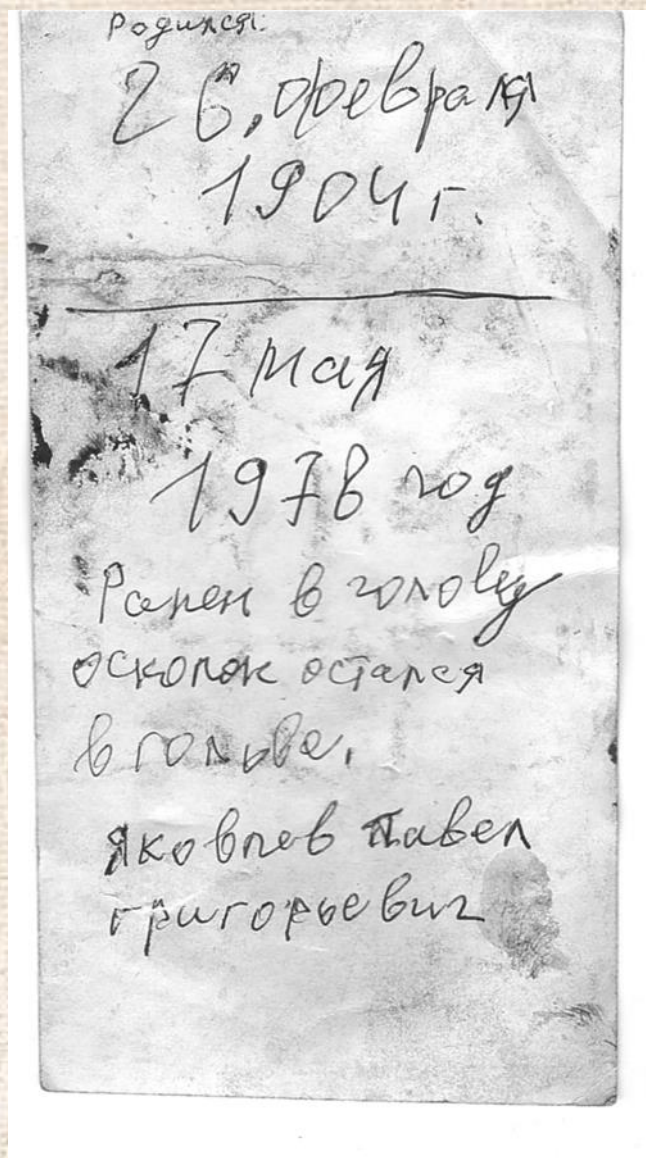 Родился:
26, февраля
1904 г.
17 мая
1978 год
Ранен в голову
осколок остался
в гольве.
Яковлев Павел
григорьевич